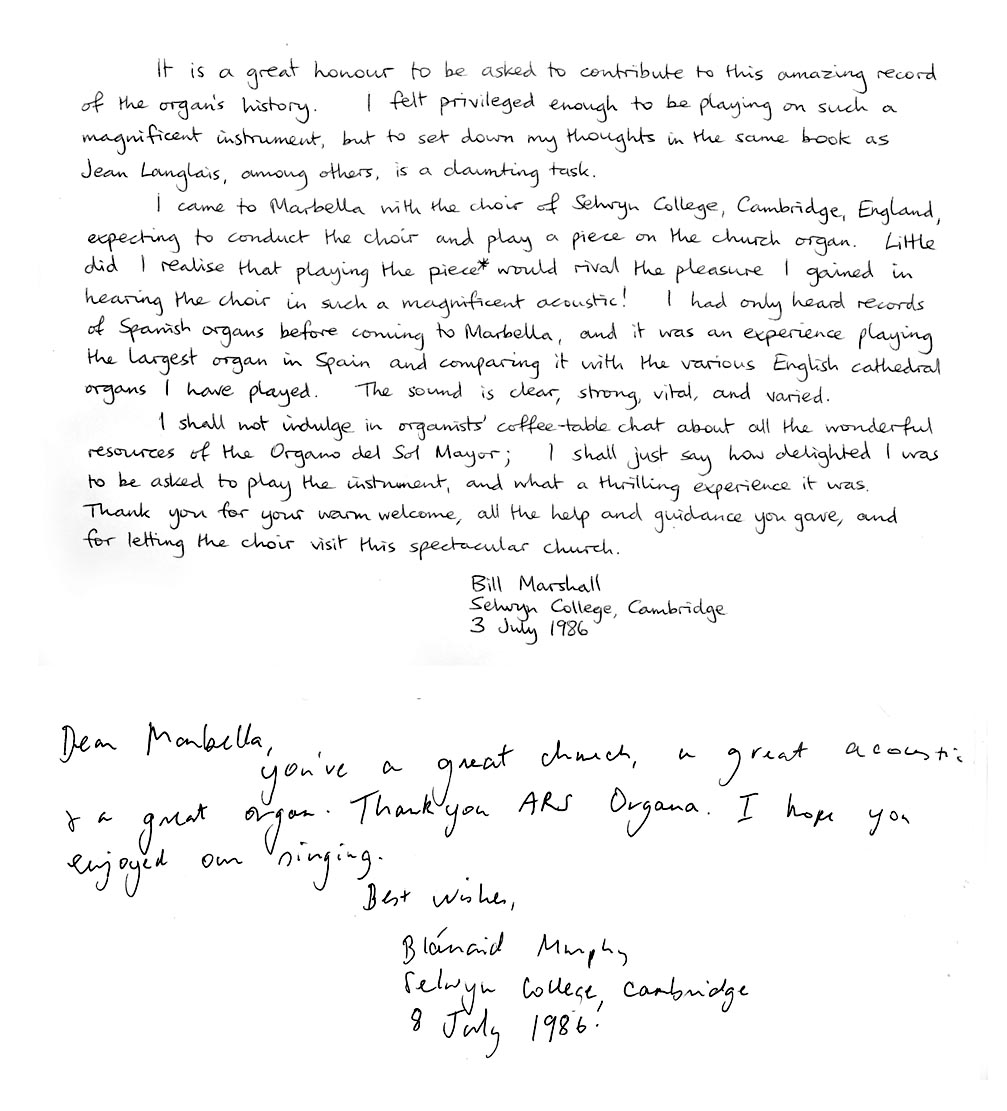 It is a great honour to be asked to contribute to this amazing record
of the organ's history. I felt privileged enough to be playing on such a
magnificent instrument, but to set down my thoughts in the same book as
Jean Langlais, among others, is a daunting task.
I came to Marbella with the choir of Selwyn College, Cambridge, England,
expecting to conduct the choir and play a piece on the church organ. Little
did I realise that playing the piece* would rival the pleasure I gained in
hearing the choir in such a magnificent acoustic! I had only heard records
of Spanish organs before coming to Marbella, and it was an experience playing
the largest organ in Spain and comparing it with the various English cathedral
organs I have played. The sound is clear, strong, vital, and varied.
I shall not indulge in organists' coffee-table chat about all the wonderful
resources of the Organo del Sol Mayor; I shall just say how delighted I was
to be asked to play the instrument, and what a thrilling experience it was.
Thank you for your warm welcome, all the help and guidance you gave, and
for letting the choir visit this spectacular church.
Bill Marshall
Selwyn College, Cambridge
3 July 1986
Dear Marbella,
you've a great church, a great acoustic
& a great organ. Thank you ARS Organa. I hope you
enjoyed our singing.
Best wishes,
Blánaid Murphy
Selwyn College, Cambridge
8 July 1986.